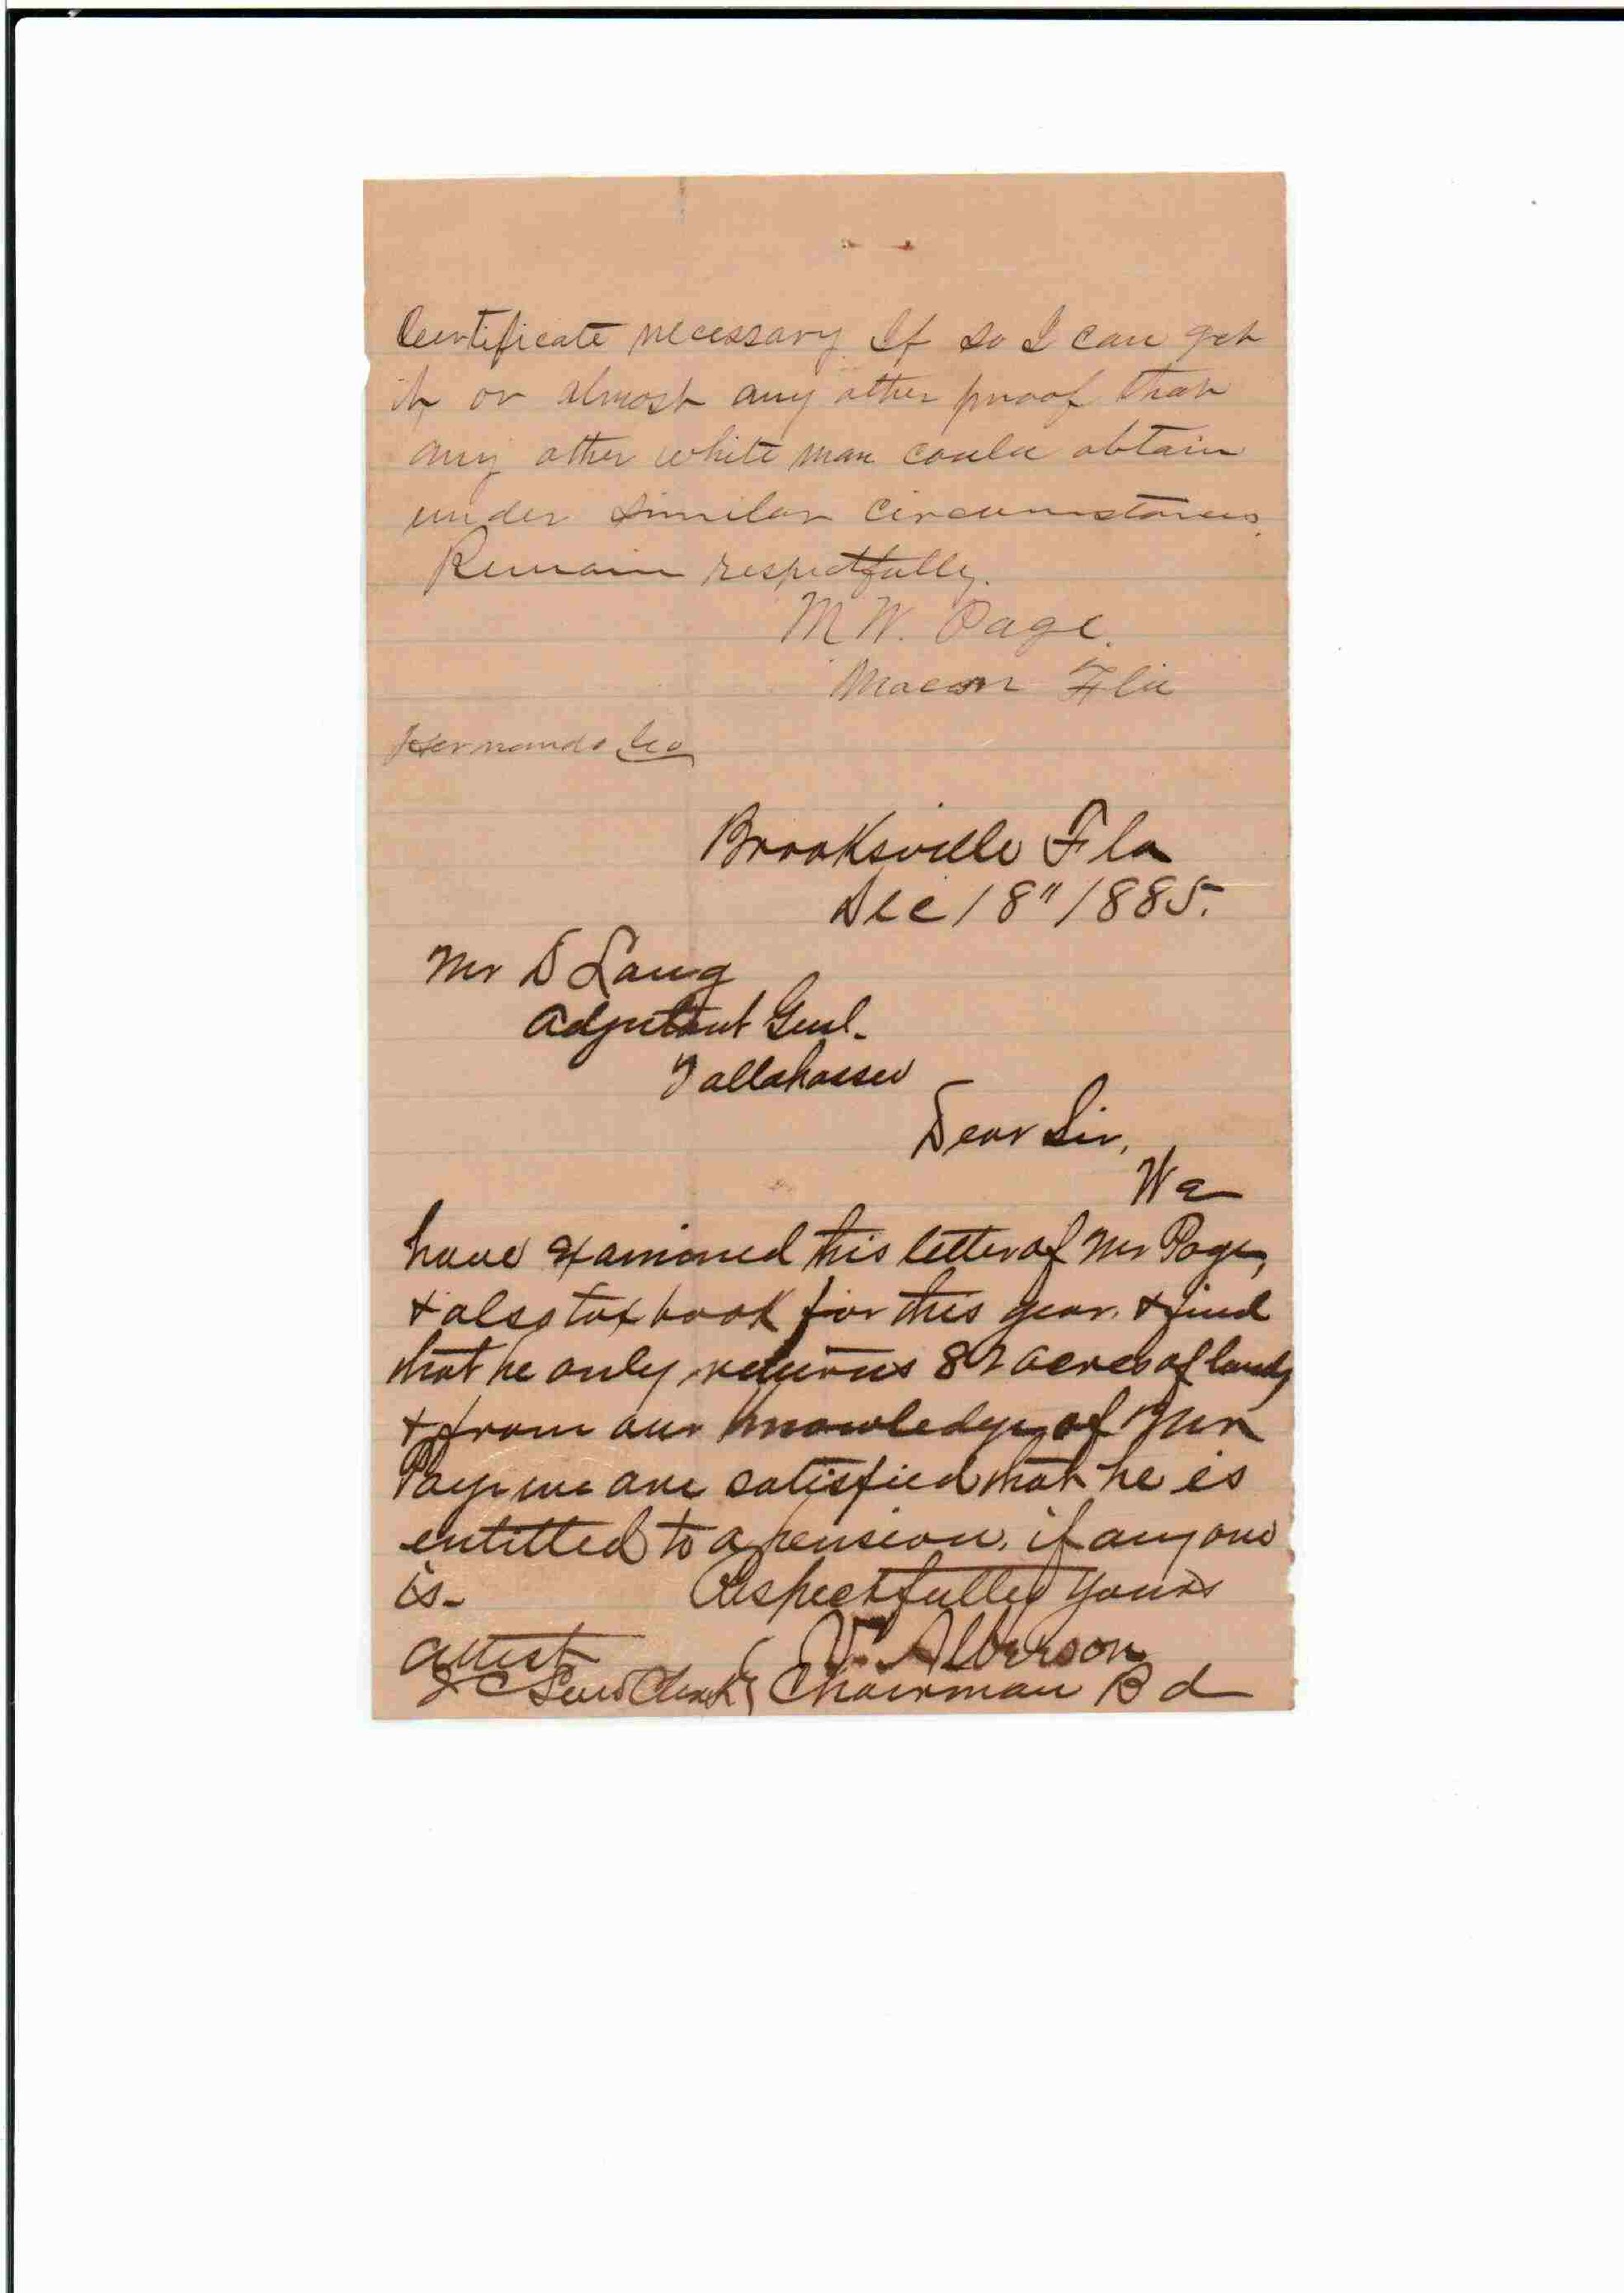 Certificate necessary. If so I can get
it or almost any other proof that
any other white man could obtain
under similar circumstances.
Remain respectfully.
M W. Page.
Macon Fla
Hernando Co
Brooksville Fla
Dec 18" 1885.
Mr D Lang
Adjutant Genl.
Tallahassee
Dear Sir,
We
have examined this letter of Mr Page,
& also tax book for this year. & find
that he only returns 82 acres of land,
& from our knowledge of Mr
Page we are satisfied that he is
entitled to a pension. if any one
is- Respectfully Yours
Attest J. V. Alberson
J C Clerk Chairman Bd